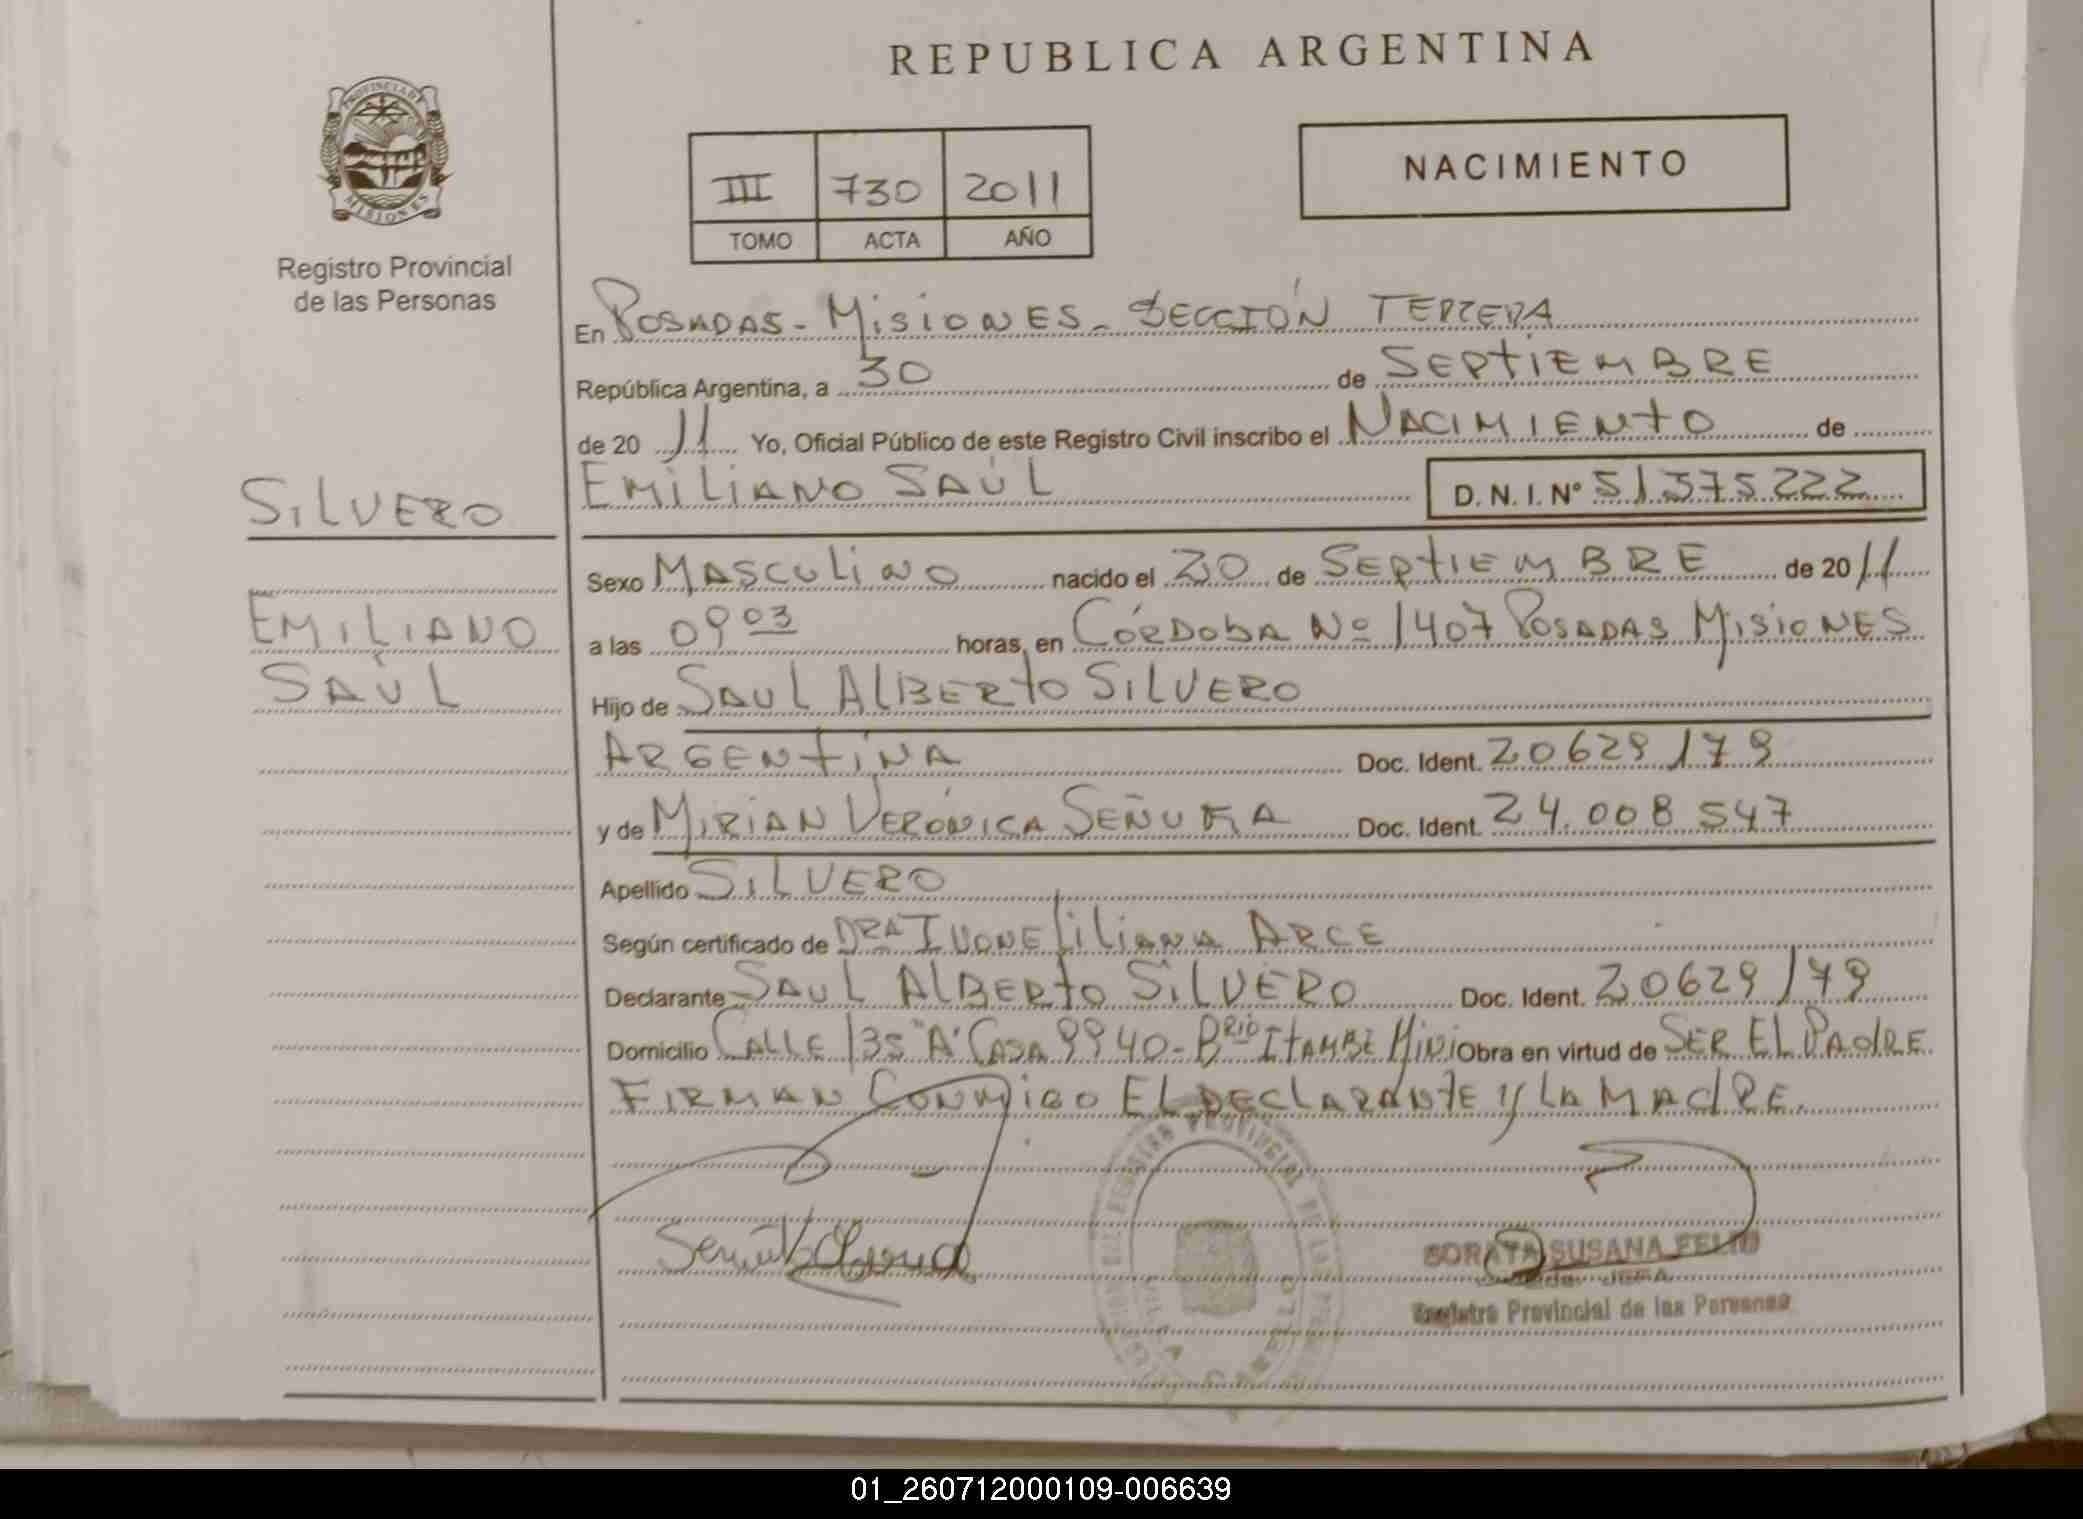 REPUBLICA ARGENTINA
PROVINCIA DE
MISIONES
Registro Provincial
de las Personas
NACIMIENTO
III 730 2011
TOMO ACTA AÑO
En POSADAS - MISIONES - SECCIÓN TERCERA
República Argentina, a 30 de SEPTIEMBRE
de 20 11 Yo, Oficial Público de este Registro Civil inscribo el NACIMIENTO de
EMILIANO SAÚL D. N. I. Nº 51375222
SILVERO
EMILIANO
SAÚL
Sexo MASCULINO nacido el 20 de SEPTIEMBRE de 20 11
a las 09 03 horas, en CÓRDOBA Nº 1407 POSADAS MISIONES
Hijo de SAUL ALBERTO SILVERO
ARGENTINA Doc. Ident. 20629179
y de MIRIAN VERÓNICA Doc. Ident. 24.008547
Apellido SILVERO
Según certificado de DRA IVONE LILIANA ARCE
Declarante SAUL ALBERTO SILVERO Doc. Ident. 20629179
Domicilio CALLE 135 "A" CASA 9940 - BRIO ITAMBÉ MINI Obra en virtud de SER EL PADRE
FIRMAN CONMIGO EL DECLARANTE Y LA MADRE.
SUSANA
JEFA
Registro Provincial de las Personas
01_260712000109-006639